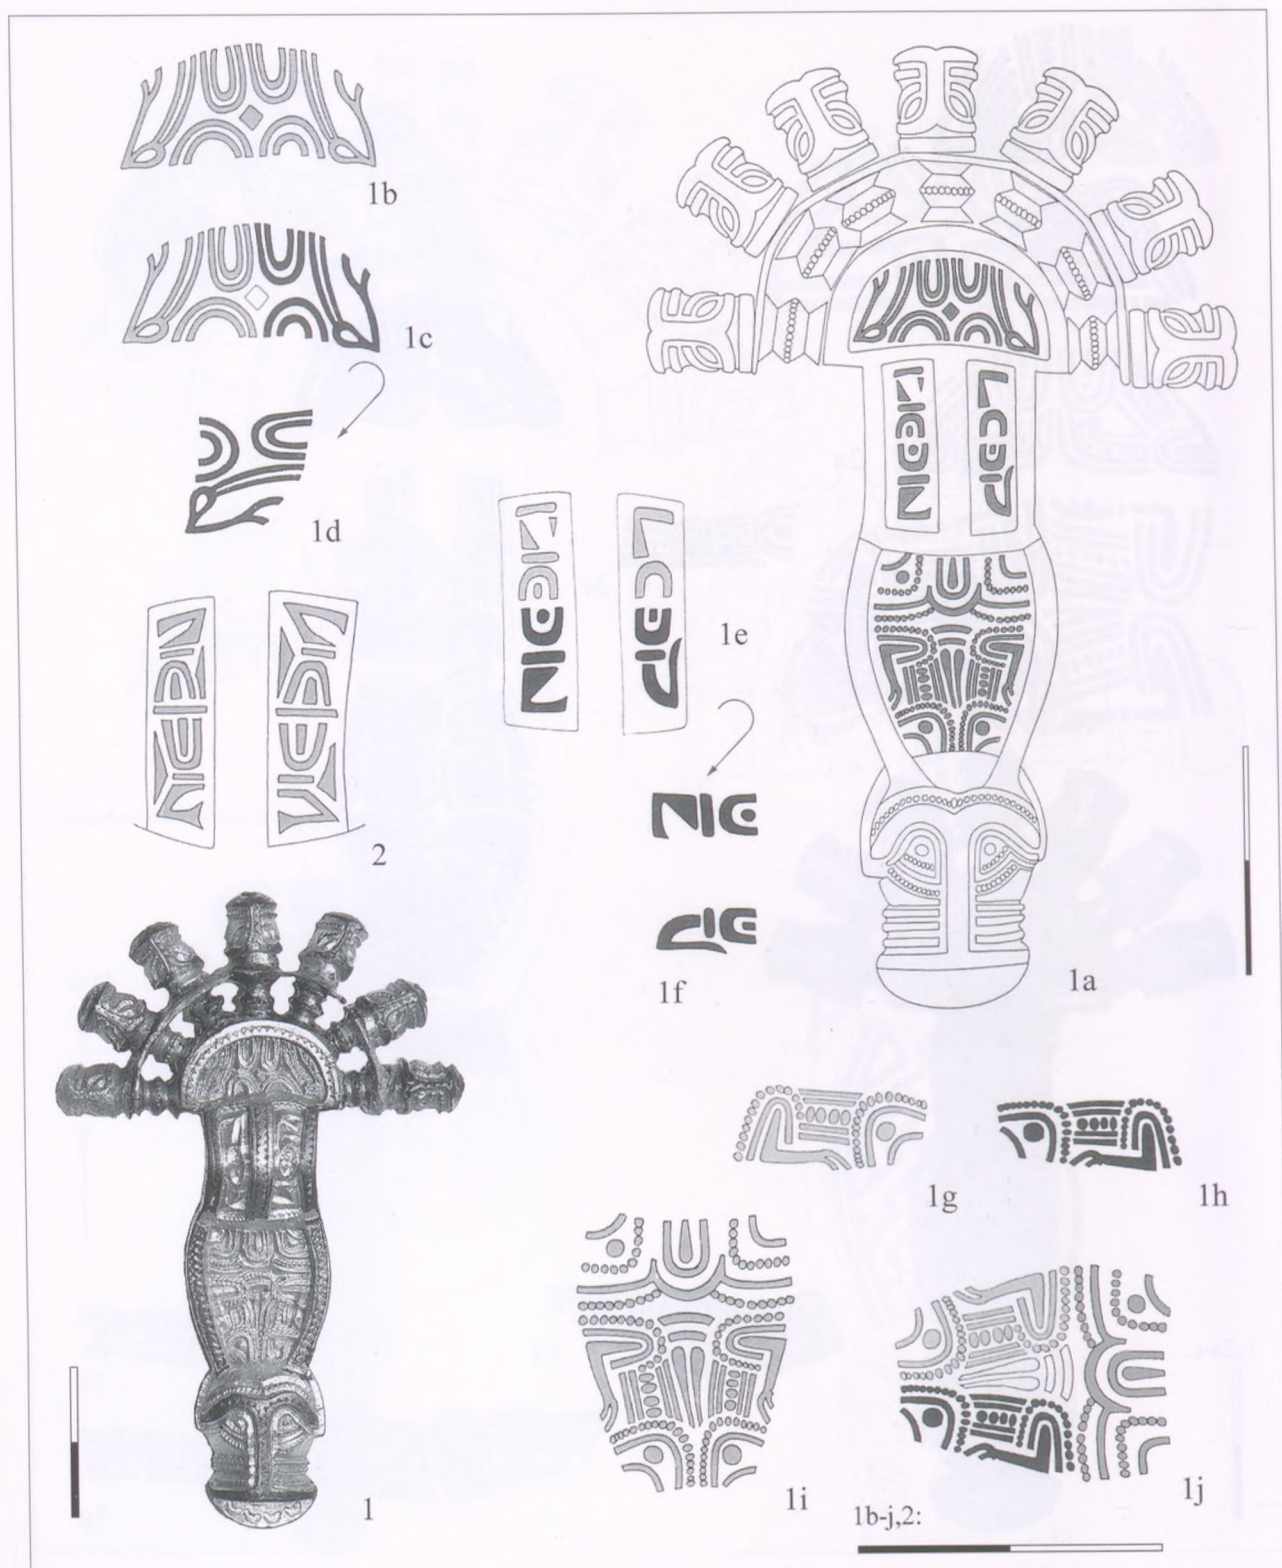 1b
1c
1d
1e
2
1f
1a
1g
1h
1i
1j
1
1b-j,2: